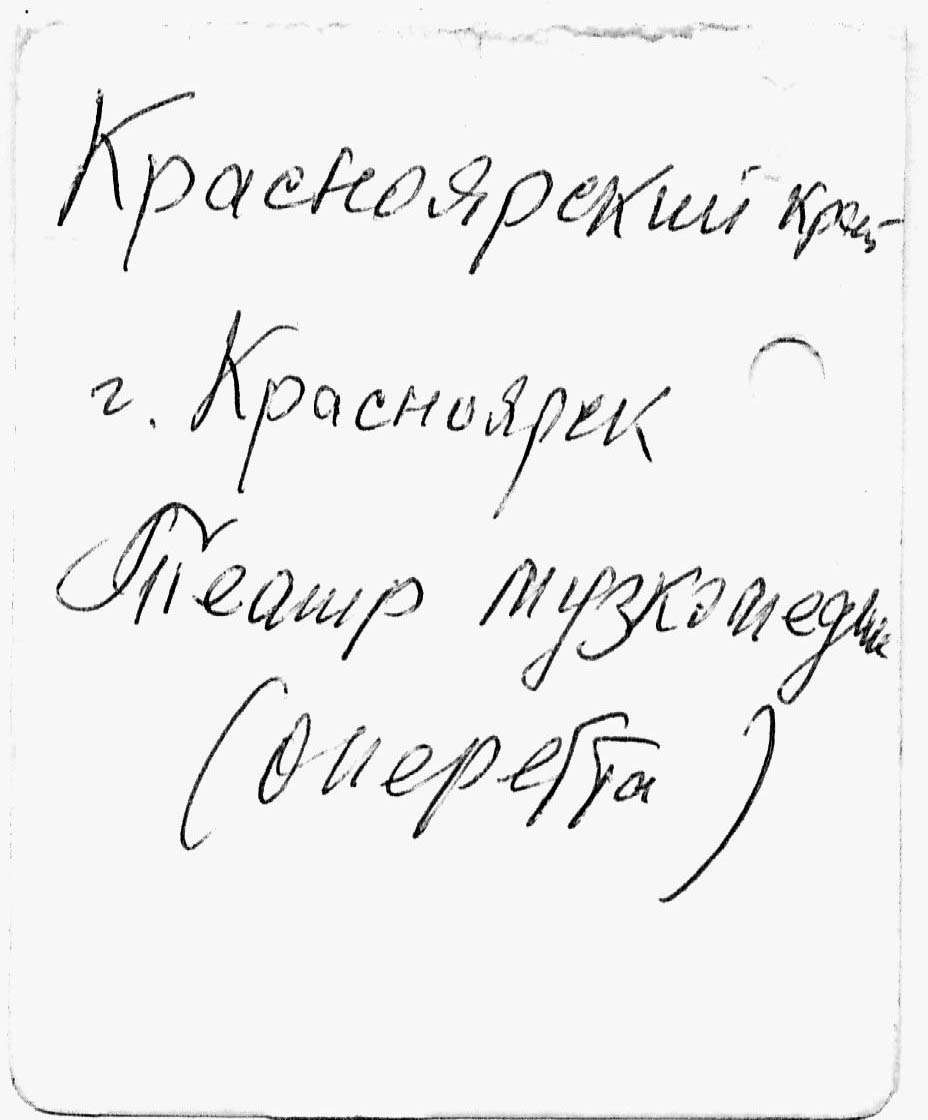 Красноярский край
г. Красноярск
Театр музкомедии
(оперетта)